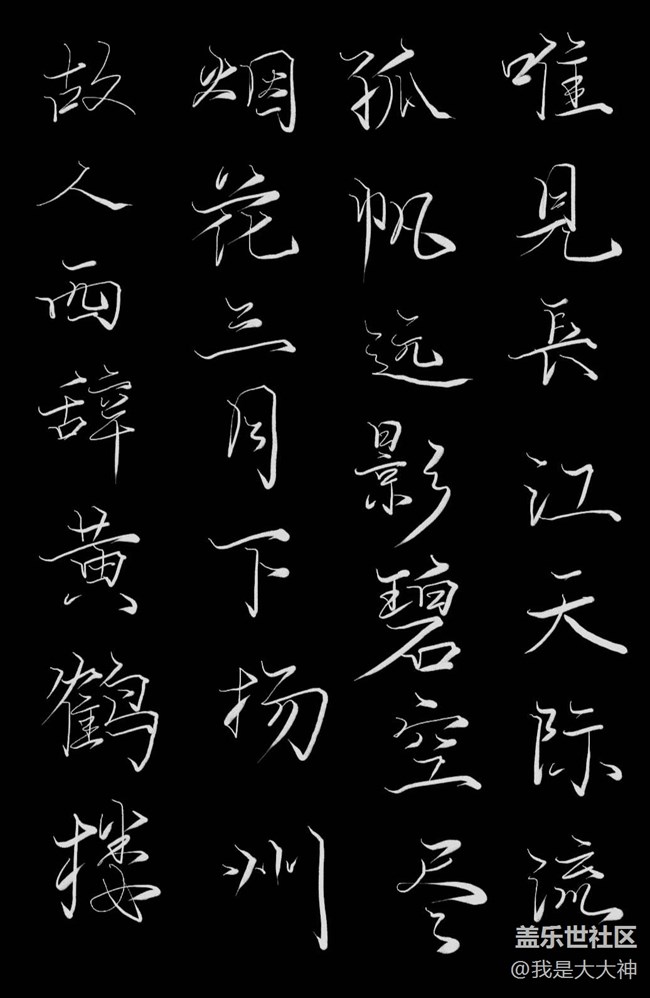 故人西辞黄鹤楼
烟花三月下扬州
孤帆远影碧空尽
唯見長江天际流
盖乐世社区
@我是大大神